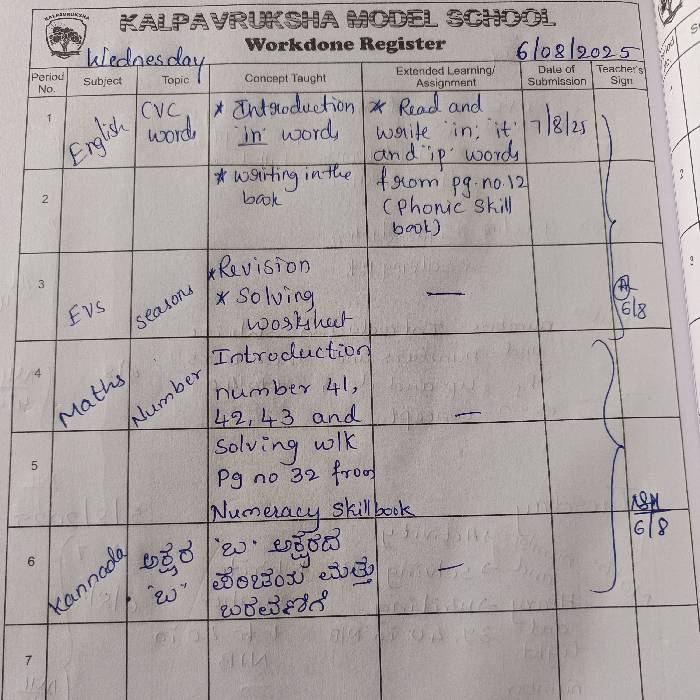 KALPAVRUKSHA MODEL SCHOOL
Workdone Register
Wednesday
6/08/2025
Period No. Subject Topic Concept Taught Extended Learning/ Assignment Date of Submission Teacher's Sign
1 English CVC words * Introduction "in" words * Read and write 'in', 'it' and 'ip' words 7/8/25
2 * writing in the book from pg.no.12 (Phonic Skill book)
3 EVS seasons * Revision * Solving worksheet —
6/8
4 Maths Number Introduction number 41, 42, 43 and —
5 Solving w/k Pg no 32 from Numeracy Skill book
6/8
6 Kannada ಅಕ್ಷರ "ಬ" 'ಬ' ಅಕ್ಷರದ ಪರಿಚಯ ಮತ್ತು ಬರವಣಿಗೆ —
7